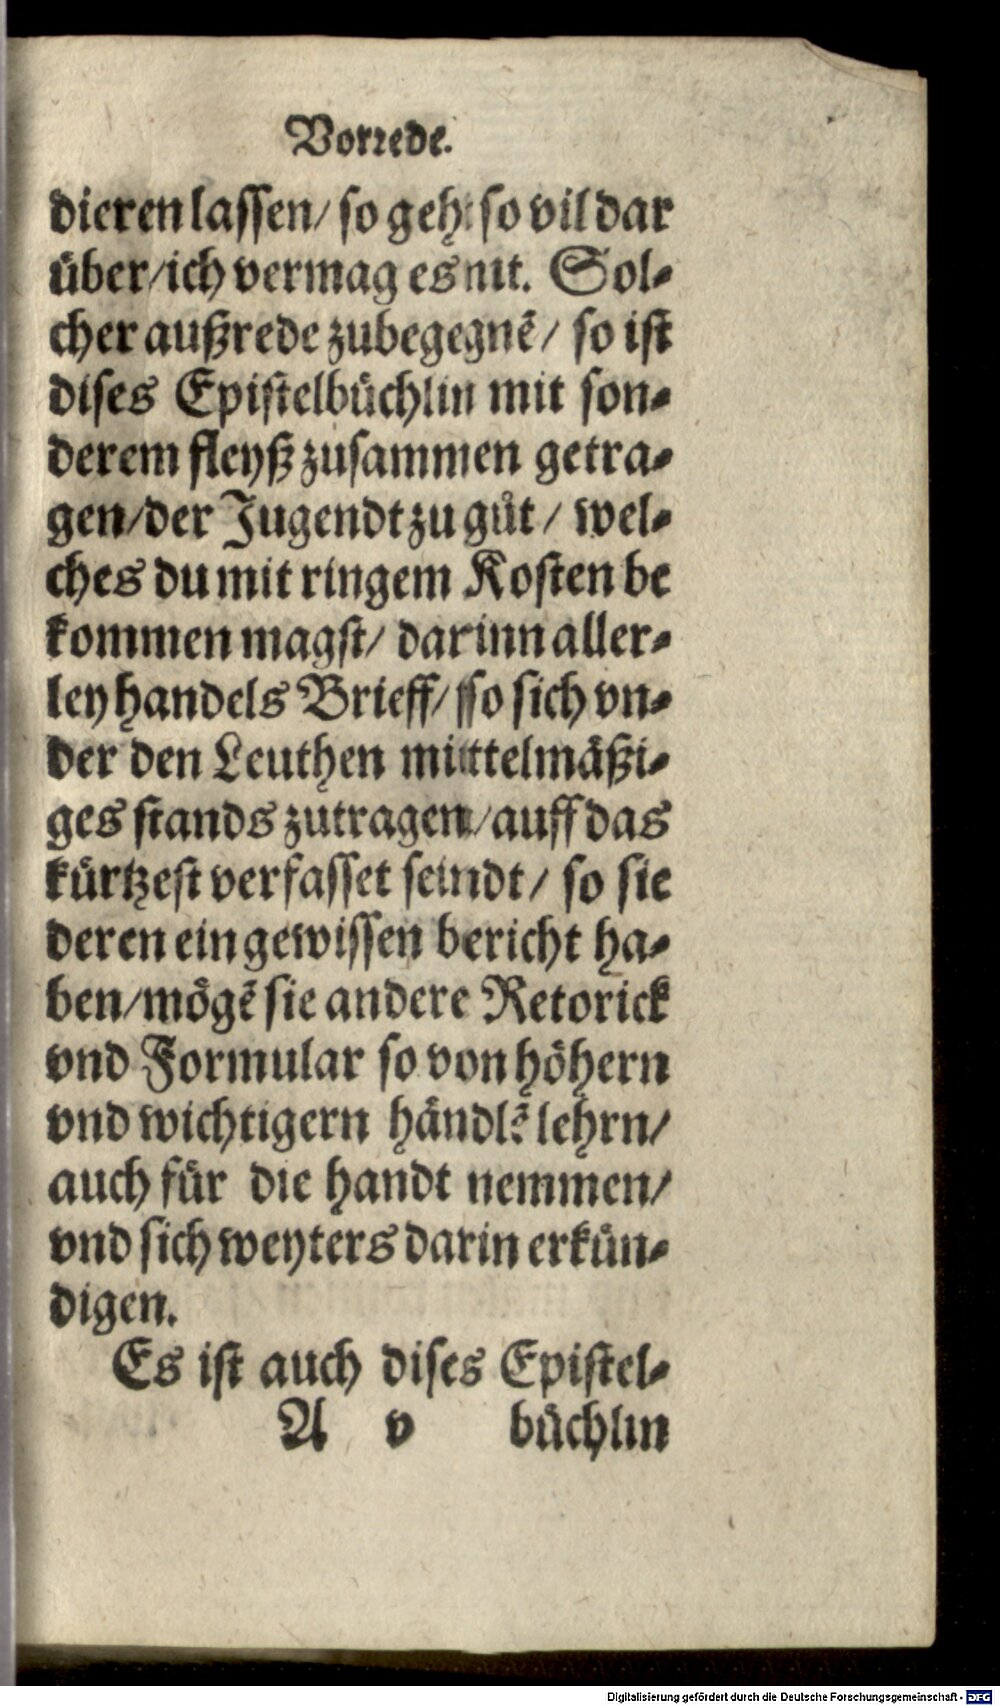 Vorrede.
dieren lassen/ so geht so vil dar
über/ ich vermag es nit. Sol⸗
cher außrede zubegegnẽ/ so ist
dises Epistelbüchlin mit son⸗
derem fleyß zusammen getra⸗
gen/ der Jugendt zu gůt/ wel⸗
ches du mit ringem Kosten be
kommen magst/ darinn aller⸗
ley handels Brieff/ so sich vn⸗
der den Leuthen mittelmäßi⸗
ges stands zutragen/ auff das
kürtzest verfasset seindt/ so sie
deren ein gewissen bericht ha⸗
ben/ mögẽ sie andere Retorick
vnd Formular so von höhern
vnd wichtigern händlẽ lehrn/
auch für die handt nemmen/
vnd sich weyters darin erkün⸗
digen.
Es ist auch dises Epistel⸗
A v büchlin
Digitalisierung gefördert durch die Deutsche Forschungsgemeinschaft - DFG